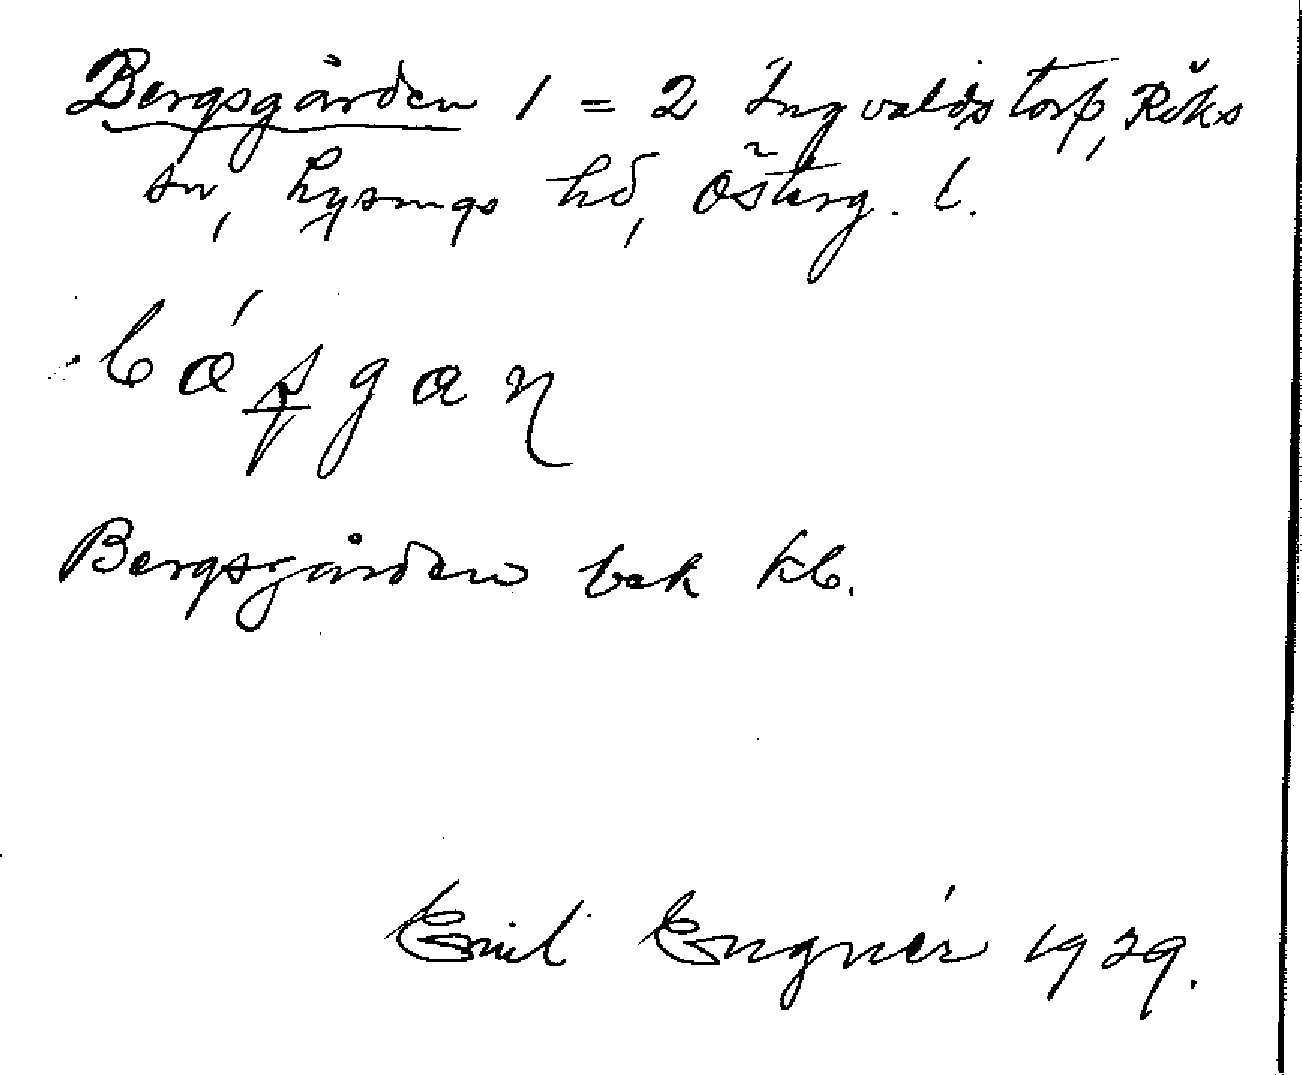 Bergsgården 1 = 2 Ingvaldstorp, Röks
sn, Lysings hd, Österg. l.
Bergsgården bek kb.
Emil Engnér 1929.